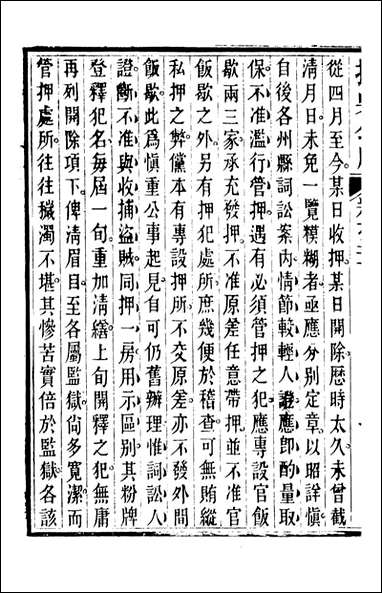 從四月至今某日收押某日開除歷時太久未曾截
清月日未免一覽糢糊者亟應分別定章以昭詳愼
自後各州縣詞訟案內情節較輕人證應卽酌量取
保不准濫行管押遇有必須管押之犯應專設官飯
歇兩三家承充發押不准原差任意帶押並不准官
飯歇之外另有押犯處所庶幾便於稽查可無賄縱
私押之弊儻本有專設押所不交原差亦不發外間
飯歇此爲愼重公事起見自可仍舊辦理惟詞訟人
證斷不准與收捕盜賊同押一房用示區別其粉牌
登釋犯名每屆一旬重加清繕上旬開釋之犯無庸
再列開除項下俾清眉目至各屬監獄尙多寬潔而
管押處所往往穢濁不堪其慘苦實倍於監獄各該